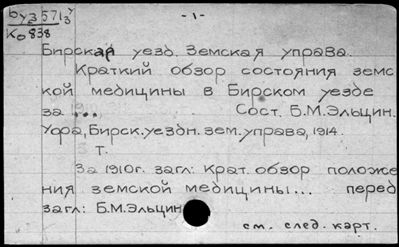 Бу3 5713 У
Ко 838
- 1 -
Бирская уезд. Земская управа.
Краткий обзор состояния земс
кой медицины в Бирском уезде
за ... Сост. Б.М.Эльцин.
Уфа, Бирск.уездн. зем.управа, 1914.
Т.
За 1910г. загл: Крат. обзор положе
ния земской медицины... перед
загл: Б.М.Эльцин
см. след. карт.